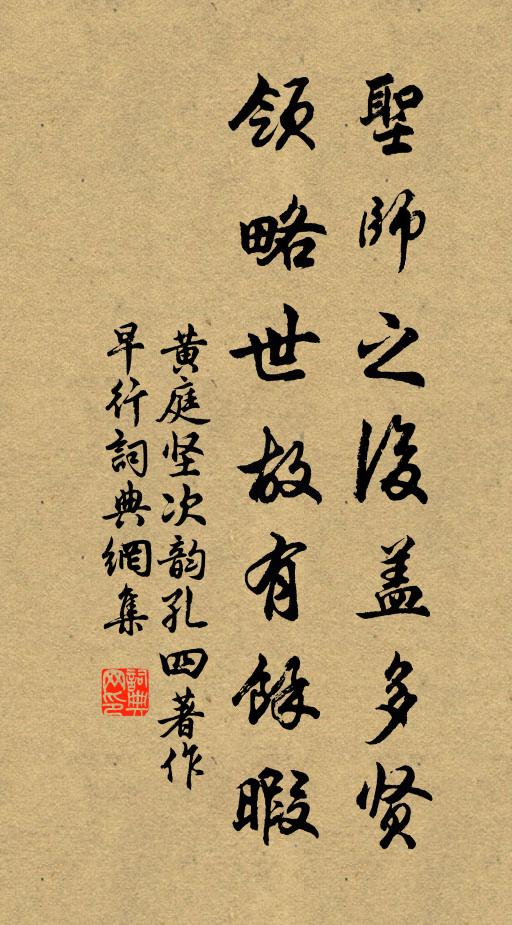 聖師之後盖多贤
領略世故有餘暇
黄庭坚次韵孔四著作
早行詞典網集
詞典网印